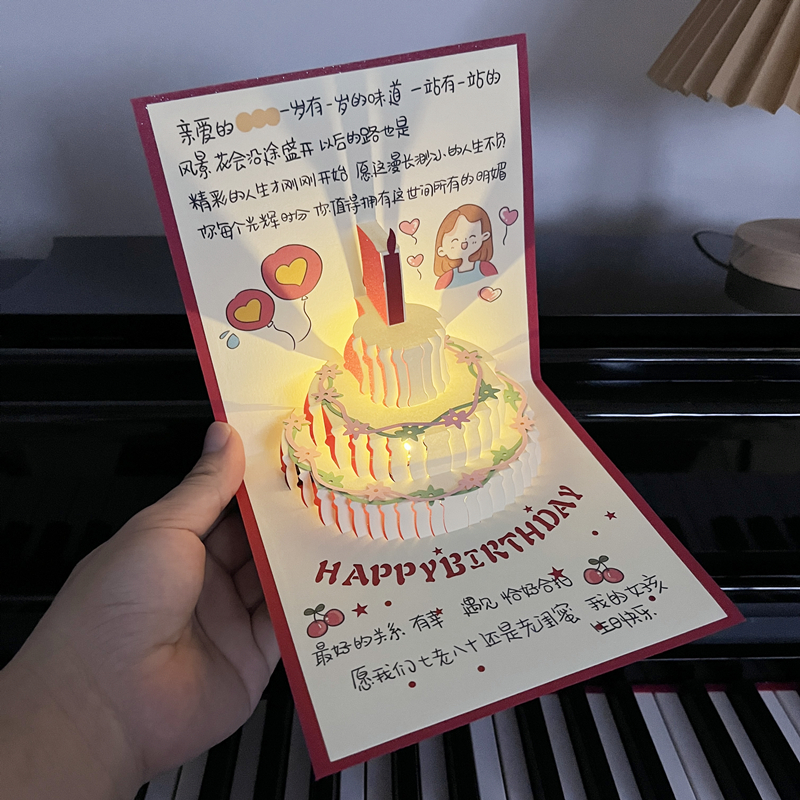 亲爱的 一岁有一岁的味道 一站有一站的
风景 花会沿途盛开 以后的路也是
精彩的人生才刚刚开始 愿这漫长渺小的人生不负
你每个光辉时分 你值得拥有这世间所有的明媚
HAPPY BIRTHDAY
最好的关系 有幸 遇见 恰好合拍 我的女孩
愿我们七老八十还是老闺蜜 生日快乐